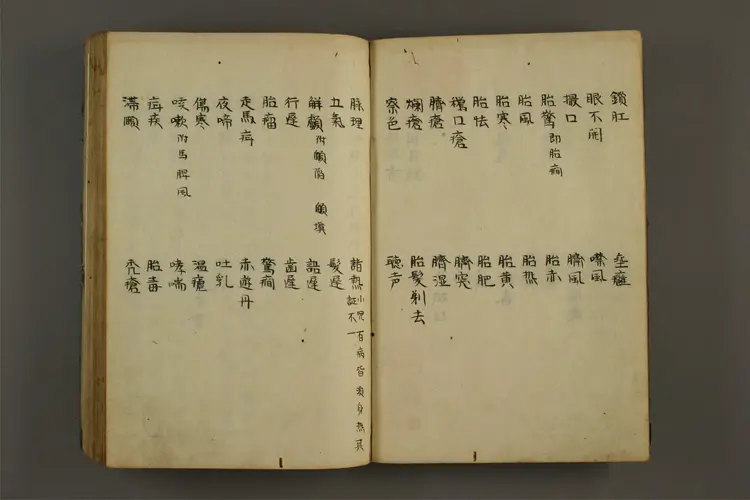 鎖肛
眼不開
撮口
胎驚 即胎癇
胎風
胎寒
胎怯
鵞口瘡
臍瘡
爛瘡
察色
噤風
臍風
胎赤
胎热
胎黄
胎肥
臍突
臍湿
胎髪剃去
聴声
脉理
五氣
解顱 附顖陷 顖填
行遅
胎瘤
走馬疳
夜啼
傷寒
咳嗽 附馬脾風
疳疾
滞頤
諸熱 小児百病皆兼身热其証不一
髮遅
語遅
歯遅
驚癇
赤遊丹
吐乳
温瘧
哮喘
胎毒
禿瘡